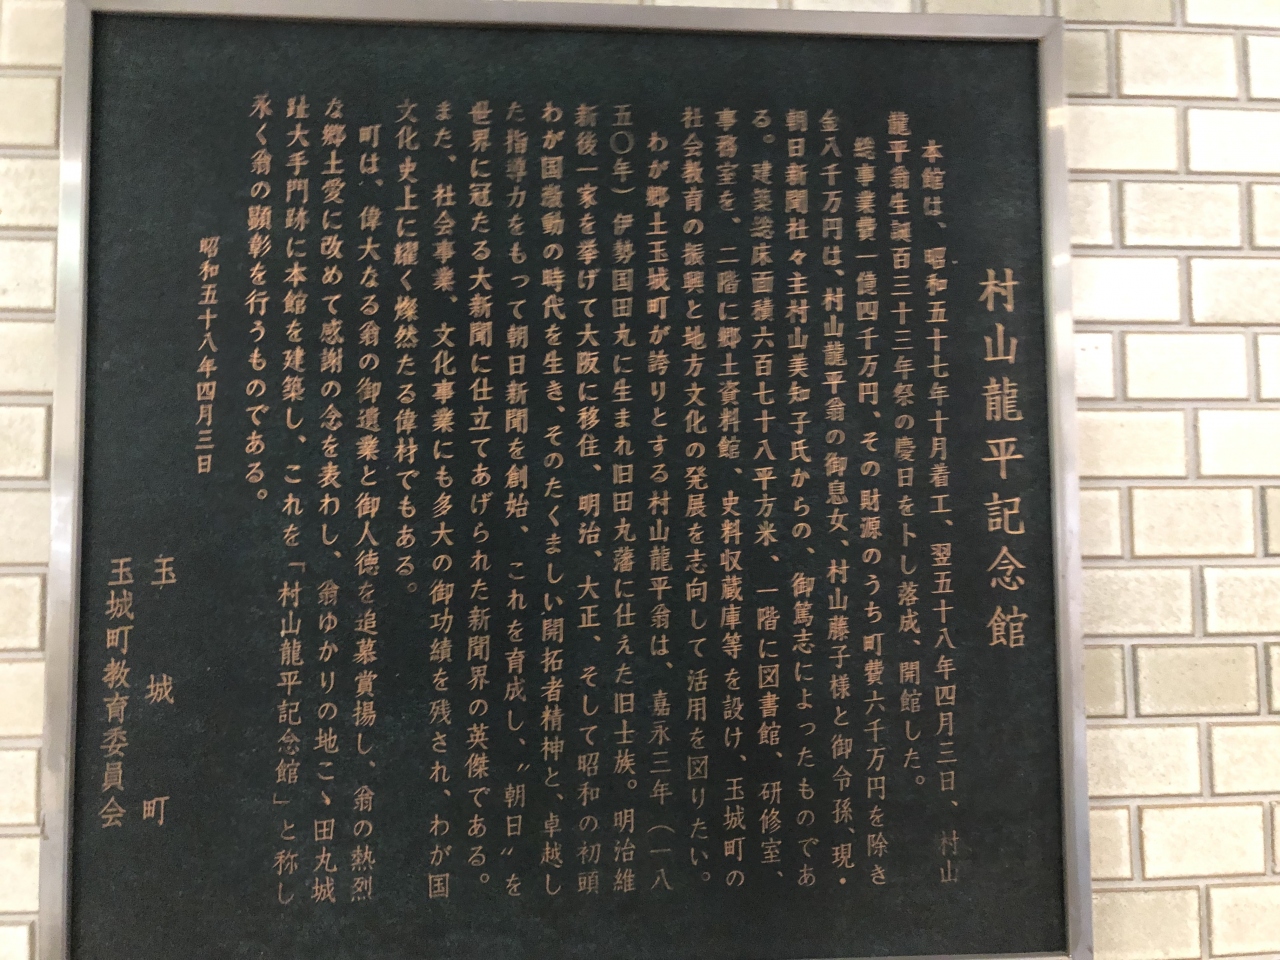 村山龍平記念館
本館は、昭和五十七年十月着工、翌五十八年四月三日、村山
龍平翁生誕百三十三年祭の慶日を卜し落成、開館した。
総事業費一億四千万円、その財源のうち町費六千万円を除き
金八千万円は、村山龍平翁の御息女、村山藤子様と御令孫、現・
朝日新聞社々主村山美知子氏からの、御篤志によったものであ
る。建築総床面積六百七十八平方米、一階に図書館、研修室、
事務室を、二階に郷土資料館、史料収蔵庫等を設け、玉城町の
社会教育の振興と地方文化の発展を志向して活用を図りたい。
わが郷土玉城町が誇りとする村山龍平翁は、嘉永三年(一八
五〇年)伊勢国田丸に生まれ旧田丸藩に仕えた旧士族。明治維
新後一家を挙げて大阪に移住、明治、大正、そして昭和の初頭
わが国激動の時代を生き、そのたくましい開拓者精神と、卓越し
た指導力をもって朝日新聞を創始、これを育成し、〝朝日〟を
世界に冠たる大新聞に仕立てあげられた新聞界の英傑である。
また、社会事業、文化事業にも多大の御功績を残され、わが国
文化史上に耀く燦然たる偉材でもある。
町は、偉大なる翁の御遺業と御人徳を追慕賞揚し、翁の熱烈
な郷土愛に改めて感謝の念を表わし、翁ゆかりの地こゝ田丸城
趾大手門跡に本館を建築し、これを「村山龍平記念館」と称し
永く翁の顕彰を行うものである。
昭和五十八年四月三日
玉城町
玉城町教育委員会